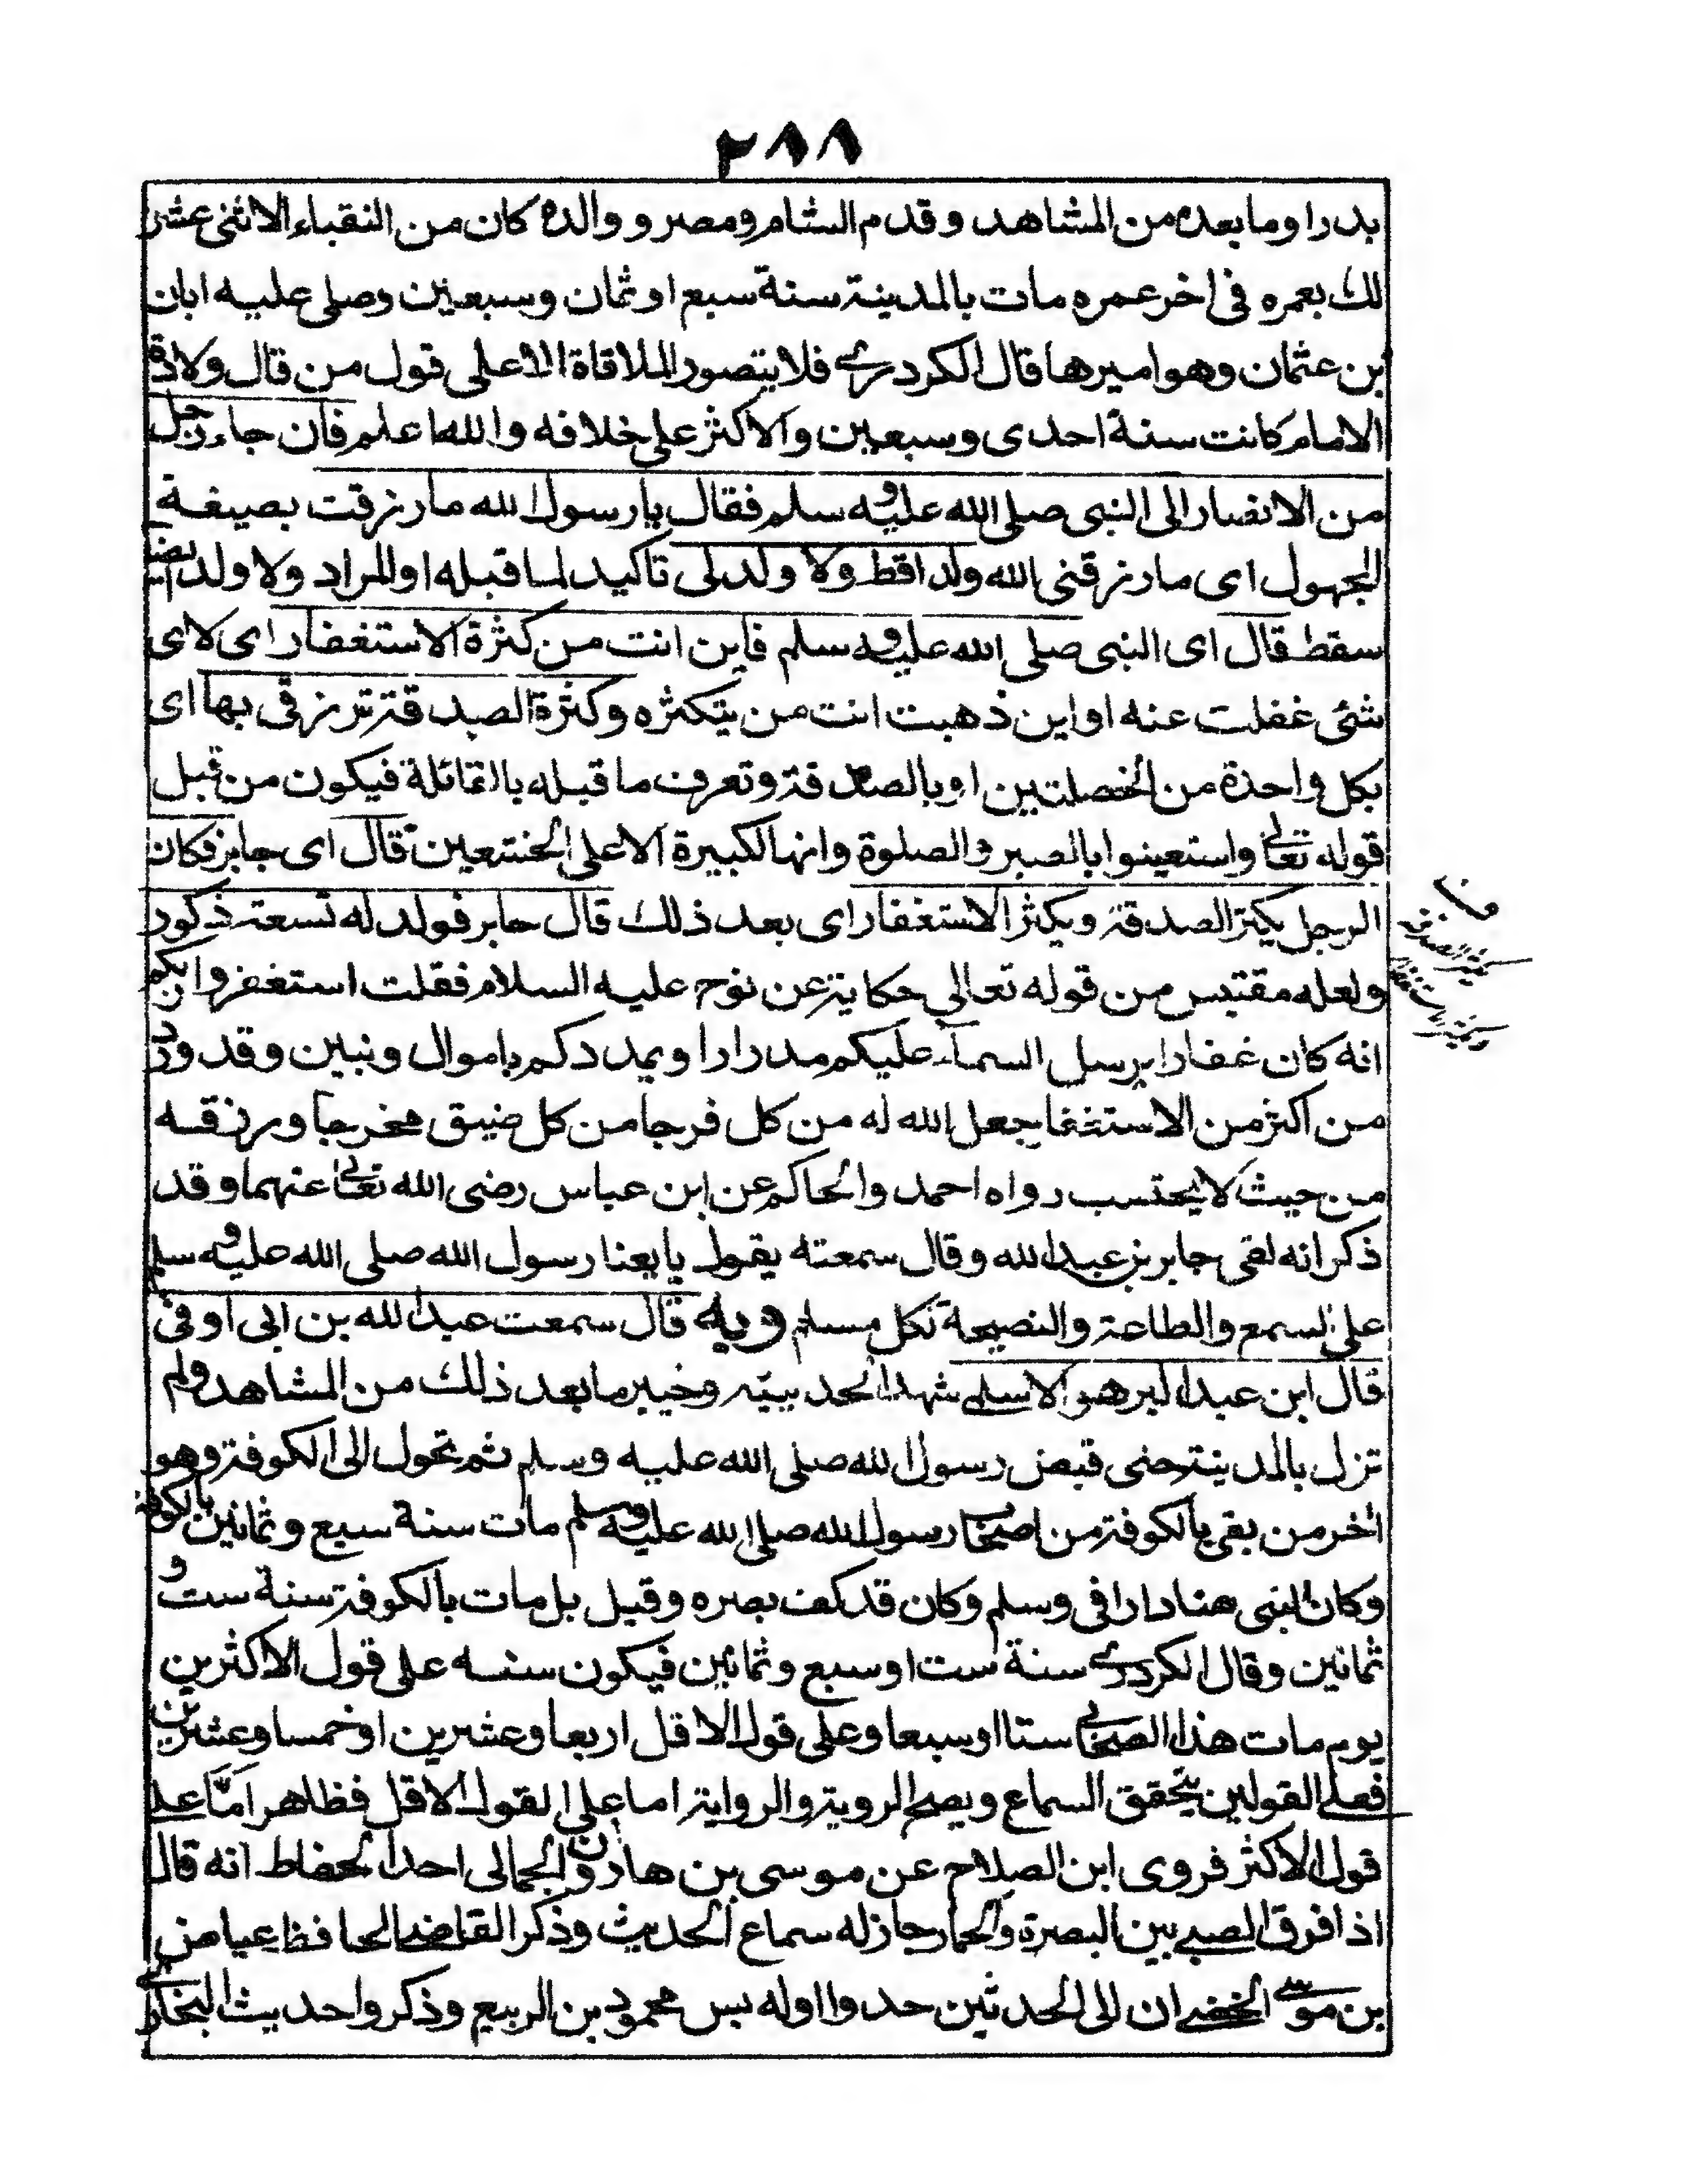 ٢٨٨
بدرا وما بعده من المشاهد وقدم الشام ومصر و والده كان من النقباء الاثنى عشر
لك بعمره فى اخر عمره مات بالمدينة سنة سبع او ثمان وسبعين وصلى عليه ابان
بن عثمان وهو اميرها قال الكردرى فلا يتصور الملاقاة الا على قول من قال ولادة
الامام كانت سنة احدى وسبعين والاكثر على خلافه والله اعلم فان جاء رجل
من الانصار الى النبى صلى الله عليه وسلم فقال يا رسول الله ما رزقت بصيغة
المجهول اى ما رزقنى الله ولدا قط ولا ولد لى تاكيد لما قبله او المراد ولا ولد
سقط قال اى النبى صلى الله عليه وسلم فاين انت من كثرة الاستغفار اى لاى
شئى غفلت عنه او اين ذهبت انت من يتكثره وكثرة الصدقة ترزق بها اى
بكل واحدة من الخصلتين او بالصدقة وتعرف ما قبله بالتمائلة فيكون من قبل
قوله تعالى واستعينوا بالصبر والصلوة وانها الكبيرة الا على الخشعين قال اى جابر فكان
الرجل يكثر الصدقة ويكثر الاستغفار اى بعد ذلك قال جابر فولد له تسعة ذكور
ولعله مقتبس من قوله تعالى حكاية عن نوح عليه السلام فقلت استغفروا ربكم
انه كان غفارا يرسل السماء عليكم مدرارا ويمددكم باموال وبنين وقد ورد
من اكثر من الاستغفا يجعل الله له من كل فرجا من كل ضيق مخرجا ورزقه
من حيث لا يحتسب رواه احمد والحاكم عن ابن عباس رضى الله تعالى عنهما وقد
ذكر انه لقى جابر بن عبد الله وقال سمعته يقول بايعنا رسول الله صلى الله عليه وسلم
على السمع والطاعة والنصيحة لكل مسلم وبه قال سمعت عبد الله بن ابى اوفى
قال ابن عبد البر هو الاسلمى شهد الحديبية وخيبر ما بعد ذلك من المشاهد ولم
تزل بالمدينة حتى قبض رسول الله صلى الله عليه وسلم ثم تحول الى الكوفة وهو
اخر من بقى بالكوفة من اصحاب رسول الله صلى الله عليه وسلم مات سنة سبع وثمانين بالكوفة
وكان البنى هنا دارا فى وسلم وكان قد كف بصره وقيل بل مات بالكوفة سنة ست و
ثمانين وقال الكردرى سنة ست او سبع وثمانين فيكون سنه على قول الاكثرين
يوم مات هذا الصحابى ستا او سبعا وعلى قول الاقل اربعا وعشرين او خمسا وعشرين
فعلى القولين يتحقق السماع ويصح الروية والرواية اما على القول الاقل فظاهر امّا على
قول الاكثر فروى ابن الصلاح عن موسى بن هارون الجمالى احد الحفاظ انه قال
اذا فرق الصبى بين البصرة والحمار جاز له سماع الحديث وذكر القاضى الحافظ عياض
بن موسى ان الى الحدثين حدوا اوله بس محمود بن الربيع وذكروا حديث البخارى